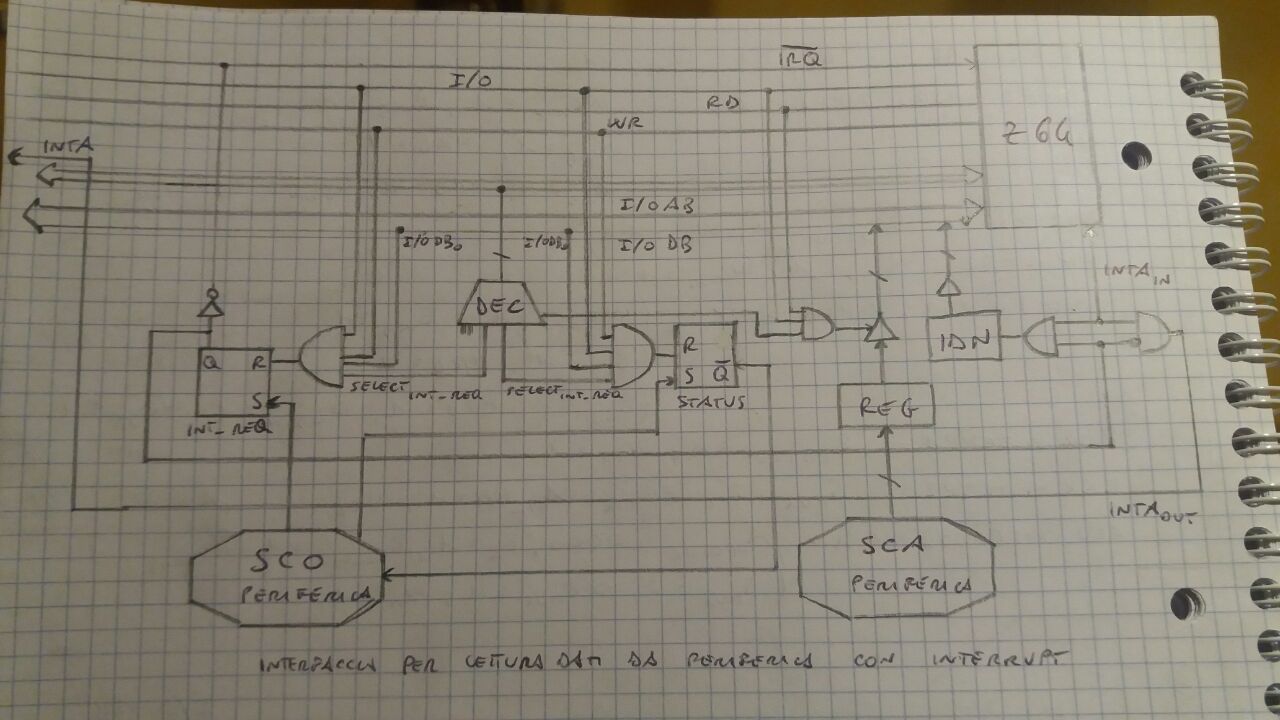 IRQ
I/O
RD
WR
Z64
INTA
I/O AB
I/O DB₀
I/O DB
I/O DB
INTA IN
DEC
Q
R
S
INT_REQ
SELECT INT_REQ
SELECT INT_REQ
R
S
Q
STATUS
IDN
REG
INTA OUT
SCO
PERIFERICA
SCA
PERIFERICA
INTERFACCIA PER LETTURA DATI DA PERIFERICA CON INTERRUPT